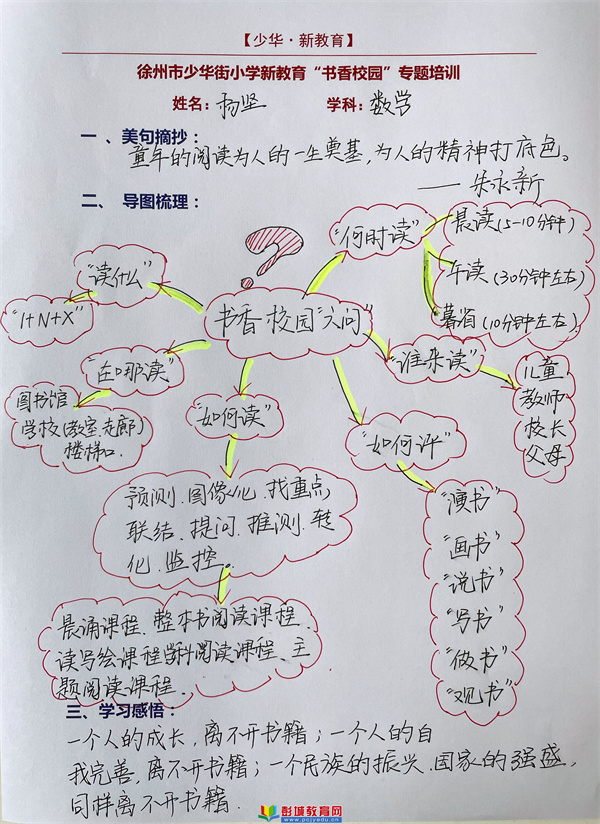 【少华·新教育】
徐州市少华街小学新教育“书香校园”专题培训
姓名：杨坚 学科：数学
一、美句摘抄：
童年的阅读为人的一生奠基，为人的精神打底色。
——朱永新
二、导图梳理：
?
书香校园“六问”
“读什么”
“1+N+X”
“在哪读”
图书馆
学校(教室走廊)
楼梯口.
“如何读”
预测.图像化.找重点,
联结.提问.推测.转
化.监控。
晨诵课程、整本书阅读课程、
读写绘课程学科阅读课程、主
题阅读课程.
“何时读”
晨读(5-10分钟)
午读(30分钟左右)
暮省(10分钟左右)
“谁来读”
儿童
教师
校长
父母
“如何评”
“演书”
“画书”
“说书”
“写书”
“做书”
“观书”
三、学习感悟：
一个人的成长，离不开书籍；一个人的自
我完善，离不开书籍；一个民族的振兴.国家的强盛，
同样离不开书籍.
彭城教育网
www.pcjyedu.cn